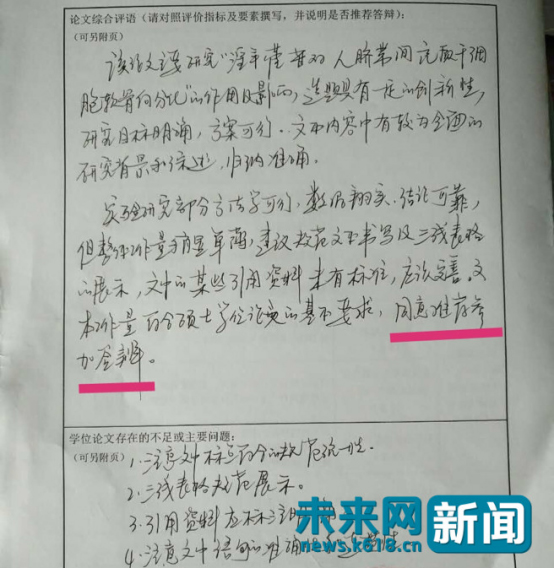 论文综合评语(请对照评价指标及要素撰写,并说明是否推荐答辩):
(可另附页)
该论文该研究"淫羊藿苷对人脐带间充质干细
胞软骨向分化"的作用及影响,选题具有一定的创新性,
研究目标明确,方案可行。文本内容中有较为全面的
研究背景和综述,归纳准确。
实验研究部分方法学可行,数据翔实、结论可靠,
但整体工作量稍显单薄,建议规范文本书写及三线表格
的展示,文中的某些引用资料未有标注,应该完善。文
本工作量符合硕士学位论文的基本要求,同意推荐参
加答辩。
学位论文存在的不足或主要问题:
(可另附页)
1、注意文中标点符合的规范统一性。
2、三线表格规范展示。
3、引用资料应标注
4、注意文中语句的准确
未来网 新闻
news.k618.cn